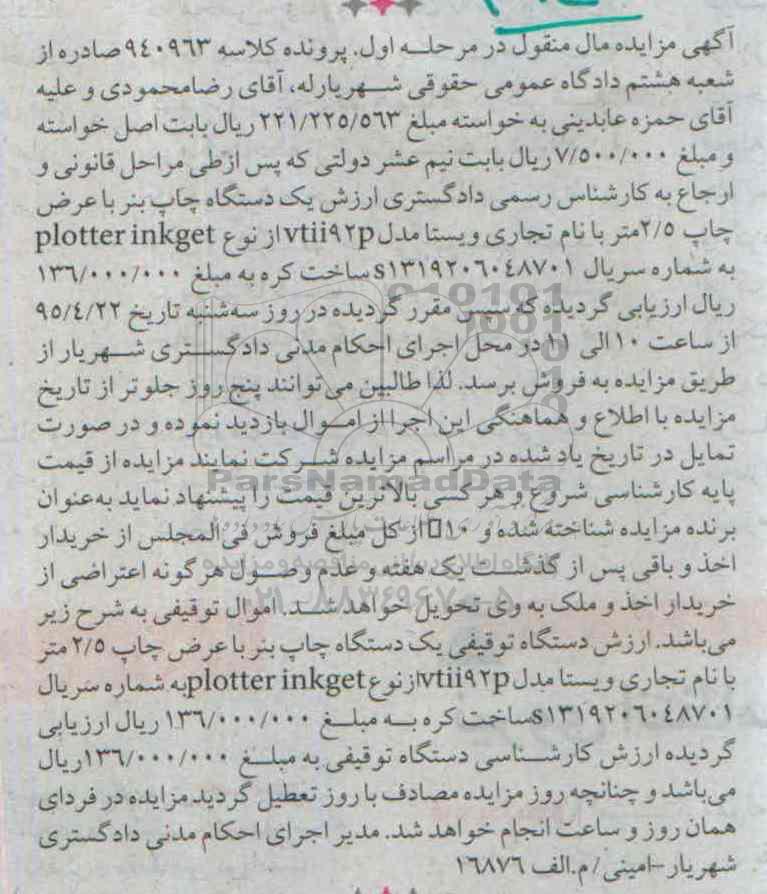 آگهی مزایده مال منقول در مرحله اول. پرونده کلاسه ۹٤۰۹٦۳ صادره از
شعبه هشتم دادگاه عمومی حقوقی شهریارله، آقای رضامحمودی و علیه
آقای حمزه عابدینی به خواسته مبلغ ۲۲۱/۲۲٥/٥٦۳ ریال بابت اصل خواسته
و مبلغ ۷/٥۰۰/۰۰۰ ریال بابت نیم عشر دولتی که پس ازطی مراحل قانونی و
ارجاع به کارشناس رسمی دادگستری ارزش یک دستگاه چاپ بنر با عرض
چاپ ۲/٥متر با نام تجاری ویستا مدل vtii۹۲p از نوع plotter inkget
به شماره سریال s۱۳۱۹۲۰٦۰٤۸۷۰۱ ساخت کره به مبلغ ۱۳٦/۰۰۰/۰۰۰
ریال ارزیابی گردیده که سپس مقرر گردیده در روز سه‌شنبه تاریخ ۹٥/٤/۲۲
از ساعت ۱۰ الی ۱۱ در محل اجرای احکام مدنی دادگستری شهریار از
طریق مزایده به فروش برسد. لذا طالبین می‌توانند پنج روز جلوتر از تاریخ
مزایده با اطلاع و هماهنگی این اجرا از اموال بازدید نموده و در صورت
تمایل در تاریخ یاد شده در مراسم مزایده شرکت نمایند مزایده از قیمت
پایه کارشناسی شروع و هر کسی بالاترین قیمت را پیشنهاد نماید به‌عنوان
برنده مزایده شناخته شده و ۱۰□ از کل مبلغ فروش فی‌المجلس از خریدار
اخذ و باقی پس از گذشت یک هفته و عدم وصول هرگونه اعتراضی از
خریدار اخذ و ملک به وی تحویل خواهد شد. اموال توقیفی به شرح زیر
می‌باشد. ارزش دستگاه توقیفی یک دستگاه چاپ بنر با عرض چاپ ۲/٥ متر
با نام تجاری ویستا مدل vtii۹۲p ازنوع plotter inkget به شماره سریال
s۱۳۱۹۲۰٦۰٤۸۷۰۱ ساخت کره به مبلغ ۱۳٦/۰۰۰/۰۰۰ ریال ارزیابی
گردیده ارزش کارشناسی دستگاه توقیفی به مبلغ ۱۳٦/۰۰۰/۰۰۰ریال
می‌باشد و چنانچه روز مزایده مصادف با روز تعطیل گردید مزایده در فردای
همان روز و ساعت انجام خواهد شد. مدیر اجرای احکام مدنی دادگستری
شهریار-امینی / م.الف ۱٦۸۷٦
ParsNamadData